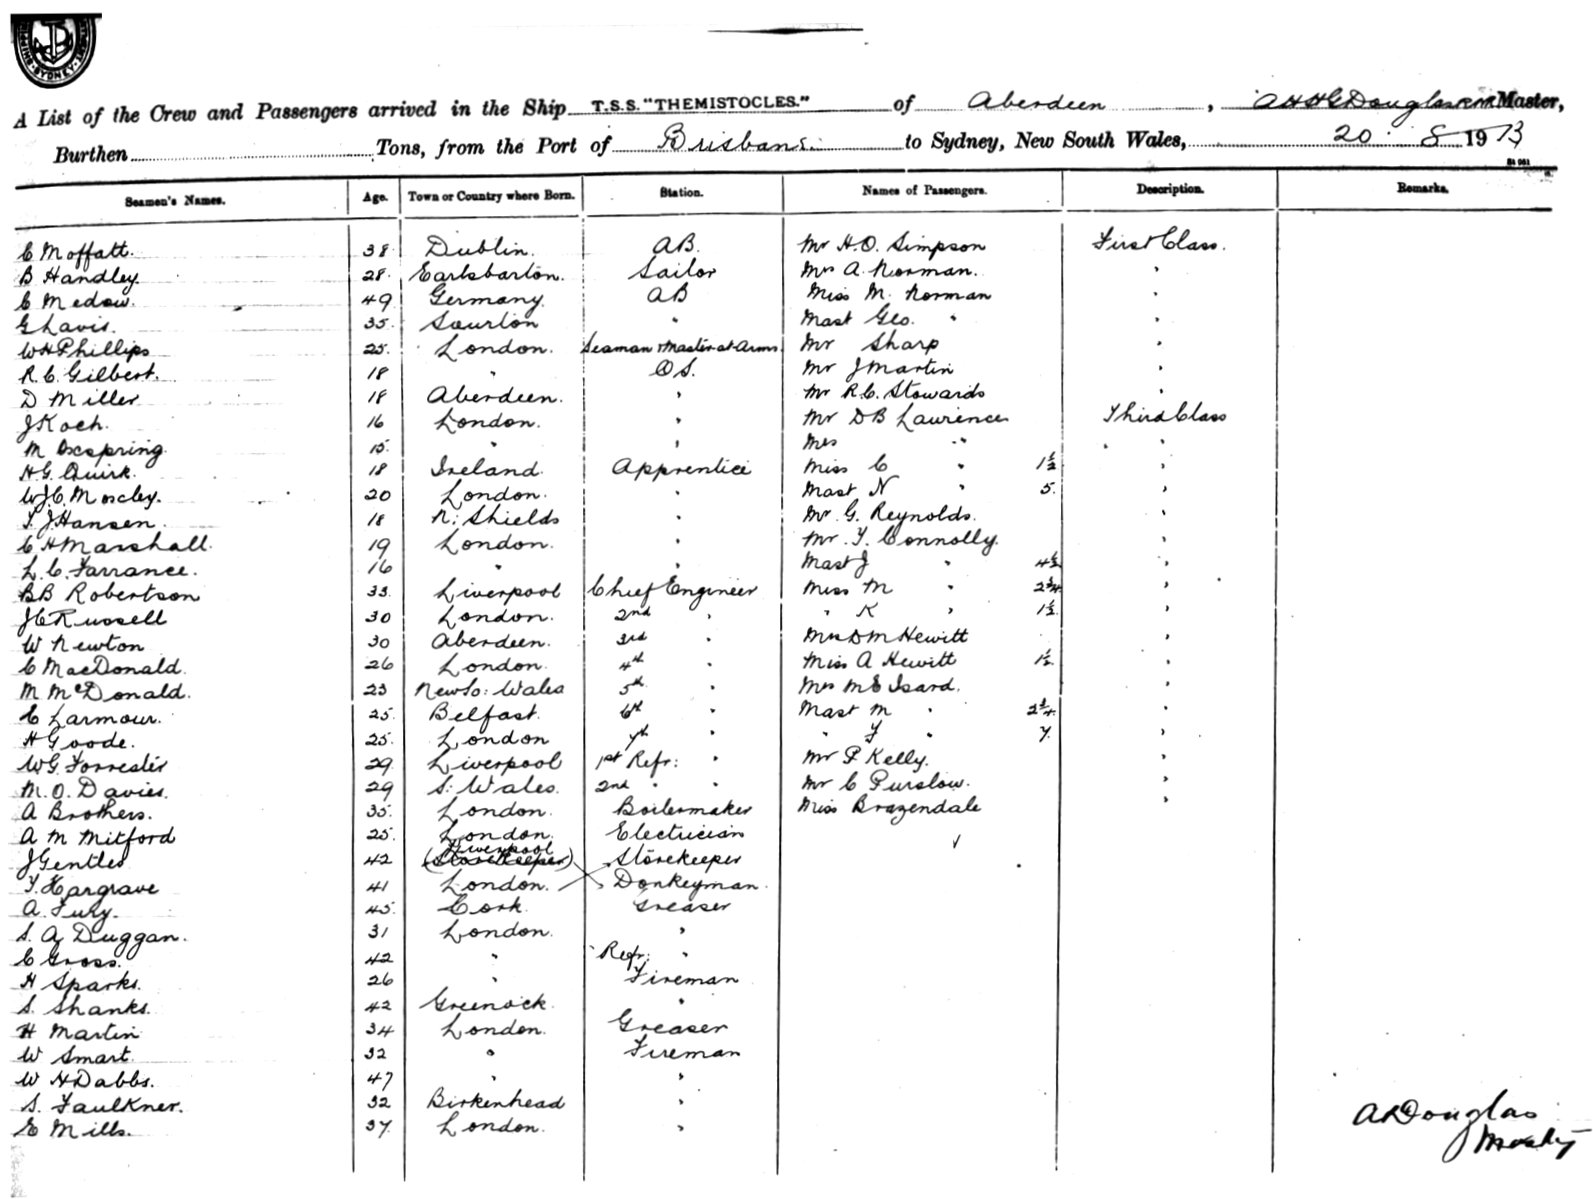 SHIPPING SYDNEY
A List of the Crew and Passengers arrived in the Ship T.S.S. "THEMISTOCLES." of Aberdeen, A H H G Douglas RNR Master,
Burthen Tons, from the Port of Brisbane to Sydney, New South Wales, 20 8 1913
Seamen's Names. Age. Town or Country where Born. Station. Names of Passengers. Description. Remarks.
C Moffatt. 38 Dublin. AB. Mr H.O. Simpson First Class.
B Handley. 28 Earlsbarton. Sailor Mrs A. Norman. "
C Medow. 49 Germany. AB Miss M. Norman "
G Lavis. 35 " Mast Geo. " "
W H Phillips 25. London. Seaman & Master at Arms Mr Sharp "
R.C. Gilbert. 18 " O.S. Mr J Martin "
D Miller 18 Aberdeen. " Mr R.C. Stowards "
J Koch. 16 London. " Mr D B Laurence Third Class
M Oxspring. 15. " " Mrs " "
H G Quirk. 18 Ireland. Apprentice Miss C " 1½ "
W.J.C. Moxley. 20 London. " Mast N " 5. "
T. J Hansen. 18 N: Shields " Mr. G. Reynolds. "
C H Marshall. 19 London. " Mr. T. Connolly. "
L.C. Farrance. 16 " " Mast J " 4½ "
B B Robertson 33. Liverpool Chief Engineer Miss M " 2¾ "
J C Russell 30 London. 2nd " " K " 1½ "
W Newton 30 Aberdeen. 3rd " Mrs D M Hewitt "
C MacDonald. 26 London. 4th " Miss A Hewitt 1½ "
M McDonald. 23 New So: Wales 5th " Mrs M E Isard. "
C Larmour. 25. Belfast. 6th " Mast M " 2¾ "
H Goode. 25. London 7th " " F " 7. "
W G Forrester 29. Liverpool 1st Refr: " Mr P Kelly. "
M. O. Davies. 29 S: Wales. 2nd " " Mr C Purslow. "
A Brothers. 35. London. Boilermaker Miss Brazendale "
A M Mitford 25. London. Electrician
J Gentles 42 Liverpool (Storekeeper) Storekeeper
T. Hargrave 41 London. Donkeyman.
A. Fury. 45. Cork. Greaser
S. A Duggan. 31 London. "
C Gross. 42 " Refr: "
H Sparks. 26 " Fireman
S. Shanks. 42 Greenock. "
H Martin 34 London. Greaser
W Smart. 32 " Fireman
W H Dabbs. 47 " "
S. Faulkner. 32 Birkenhead "
E Mills. 37. London. "
A Douglas
Master